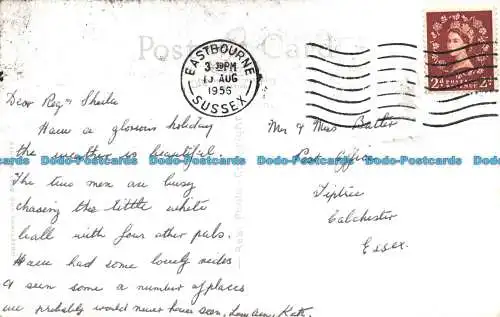 Post Card
EASTBOURNE
3 30PM
13 AUG
1956
SUSSEX
2D POSTAGE REVENUE 2D
Dear Reg & Sheila
Have a glorious holiday
the weather is beautiful.
The two men are busy
chasing the little white
ball with four other pals.
Have had some lovely rides
& seen some a number of places
we probably would never have seen, Love Len, Kath.
Mr & Mrs Butler
Post Office
Tiptree
Colchester
Essex.
Dodo-Postcards Dodo-Postcards Dodo-Postcards Dodo-Postcards Dodo-Postcards Dodo-Postcards